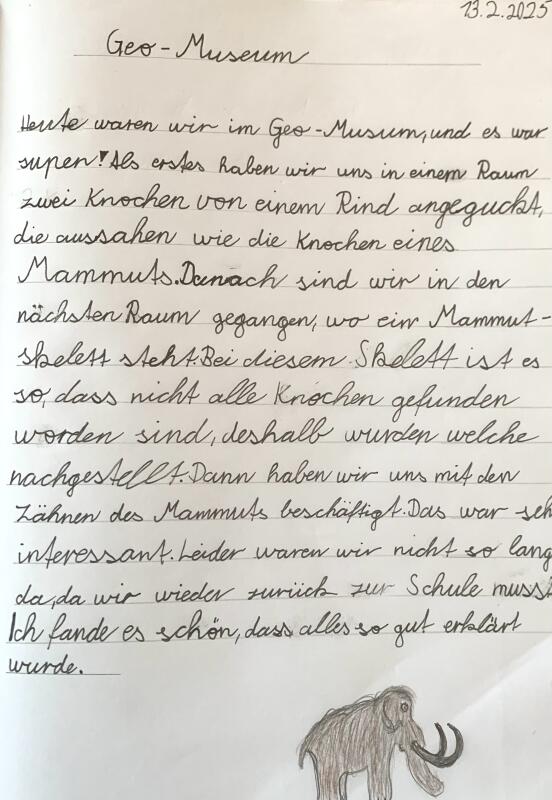 13.2.2025
Geo-Museum
Heute waren wir im Geo-Musum, und es war
super! Als erstes haben wir uns in einem Raum
zwei Knochen von einem Rind angeguckt,
die aussahen wie die Knochen eines
Mammuts. Danach sind wir in den
nächsten Raum gegangen, wo ein Mammut-
skelett steht. Bei diesem Skelett ist es
so, dass nicht alle Knochen gefunden
worden sind, deshalb wurden welche
nachgestellt. Dann haben wir uns mit den
Zähnen des Mammuts beschäftigt. Das war seh
interessant. Leider waren wir nicht so lang
da, da wir wieder zurück zur Schule musst
Ich fande es schön, dass alles so gut erklärt
wurde.